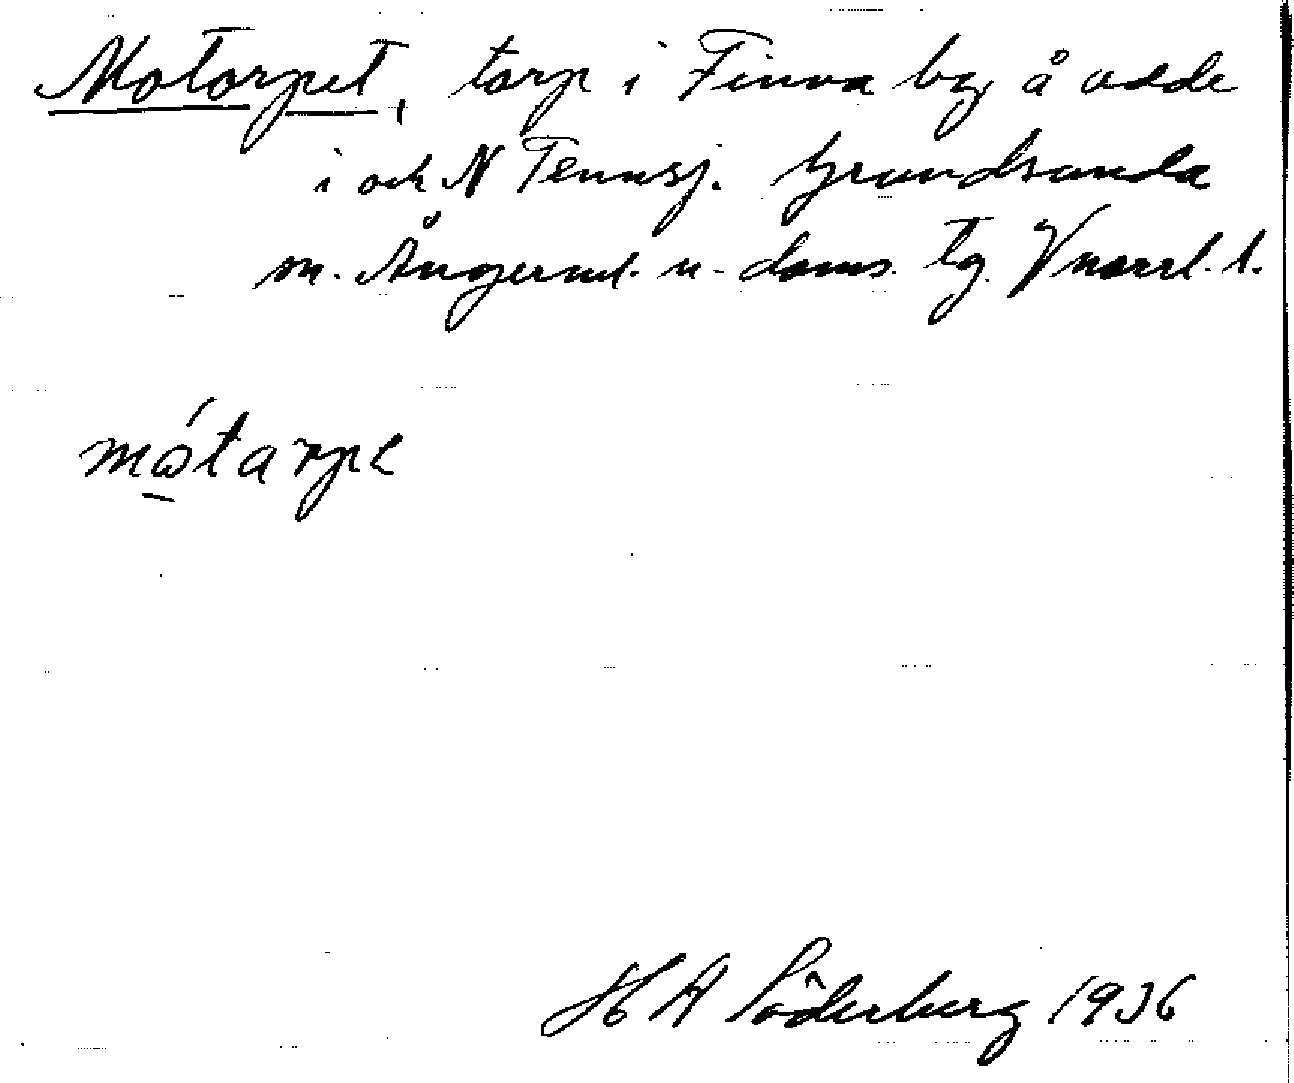 Motorpet, torp i Finva by å udde
i och N Tennsj. Grundsunda
sn. Ångerml. n. doms. tg. Vnorrl. l.
mótarpe
H A Söderberg 1936